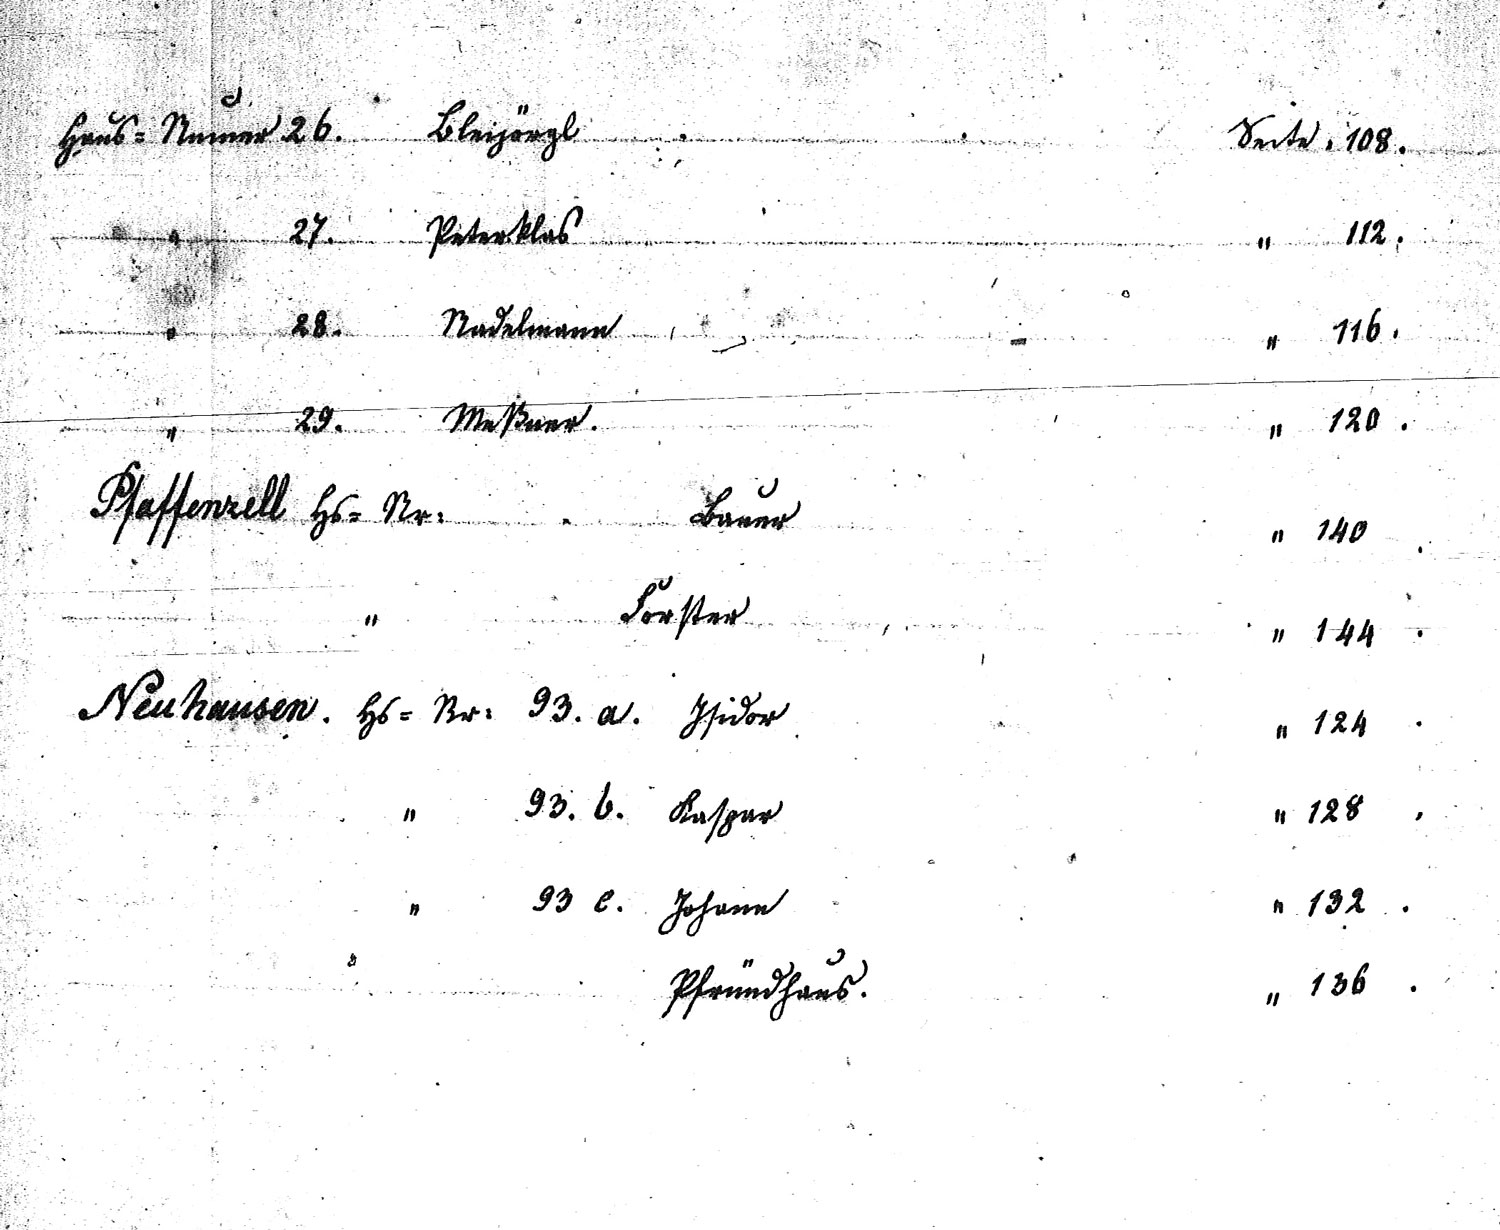 Haus= Numer 26. Bleijörgl Seite. 108.
" 27. Peterklas " 112.
" 28. Nadelmann " 116.
" 29. Meßner. " 120.
Pfaffenzell Hs= Nr: Bauer " 140.
" Forster " 144.
Neuhausen. Hs= Nr: 93. a. Isidor " 124.
" 93. b. Kaspar " 128.
" 93 c. Johann " 132.
Pfründhaus. " 136.